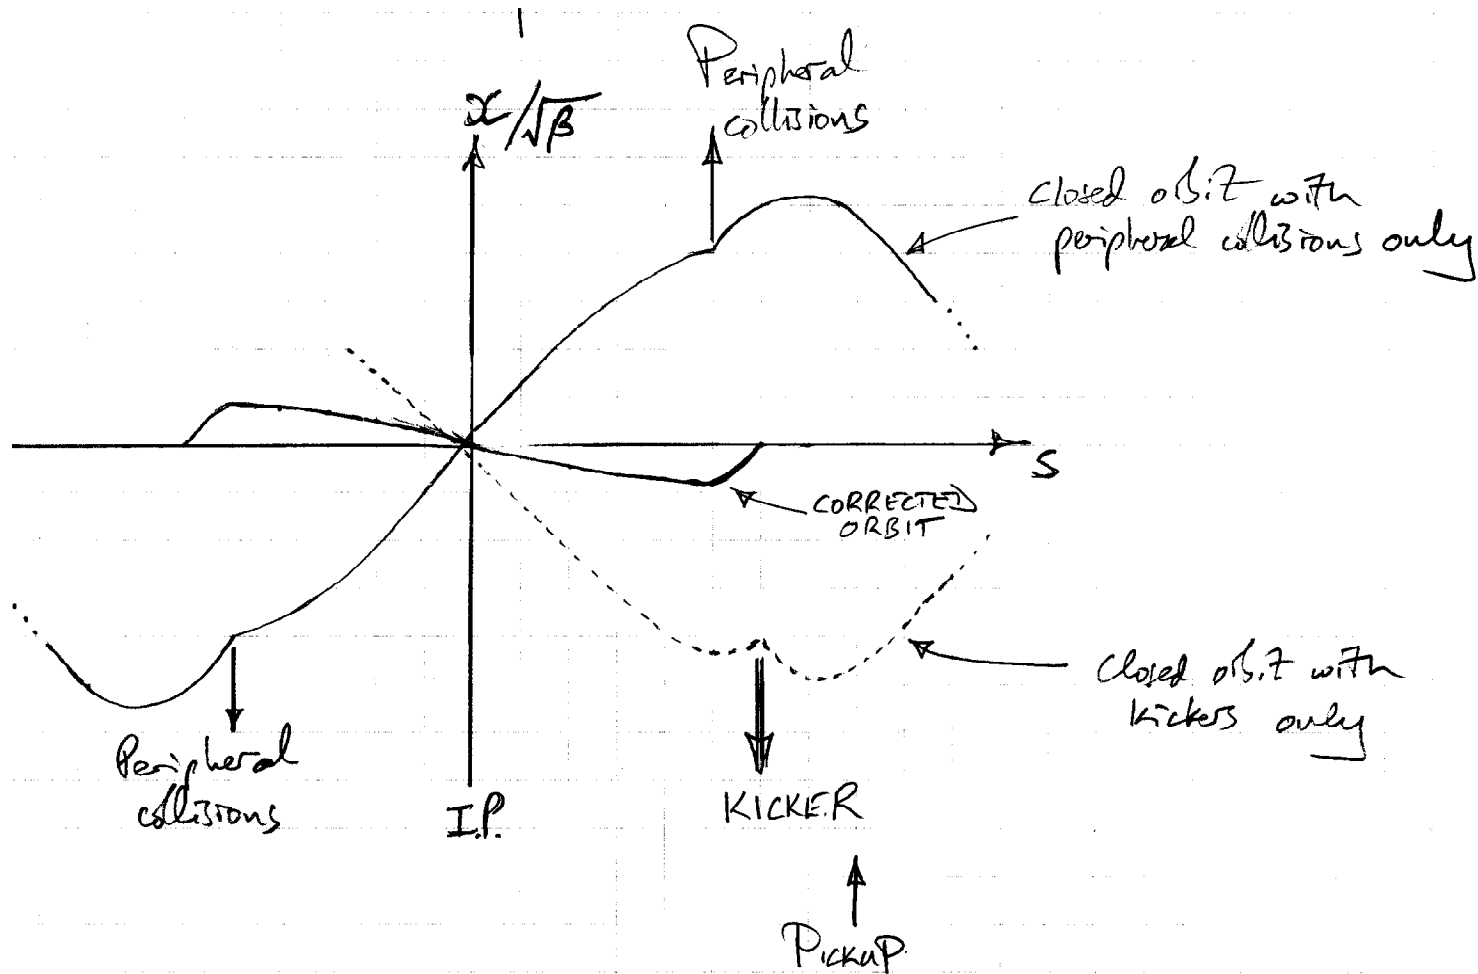 x/√β
Peripheral
collisions
closed orbit with
peripheral collisions only
S
CORRECTED
ORBIT
closed orbit with
kickers only
Peripheral
collisions
I.P.
KICKER
PICKUP